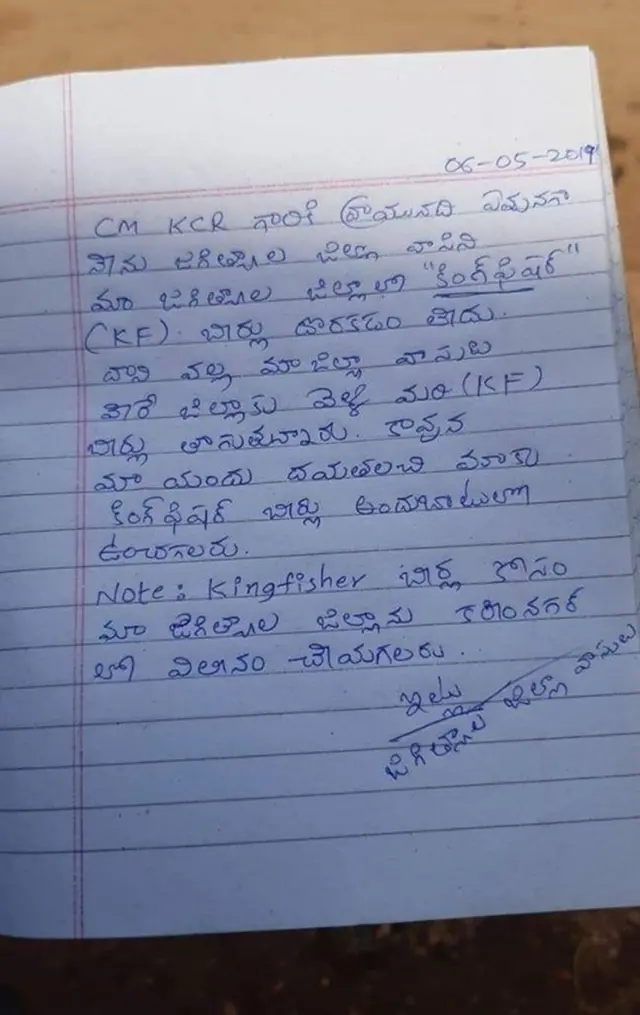 06-05-2019
CM KCR గారికి వ్రాయునది ఏమనగా
నేను జగిత్యాల జిల్లా వాసిని
మా జగిత్యాల జిల్లాలో "కింగ్ ఫిషర్"
(KF). బీర్లు దొరకడం లేదు.
దాని వల్ల మా జిల్లా వాసులు
వేరే జిల్లాకు వెళ్ళి మరి (KF)
బీర్లు తాగుతున్నారు. కావున
మా యందు దయతలచి మాకు
కింగ్ ఫిషర్ బీర్లు అందుబాటులో
ఉంచగలరు.
Note: Kingfisher బీర్ల కోసం
మా జగిత్యాల జిల్లాను కరీంనగర్
లో విలీనం చేయగలరు.
ఇట్లు
జగిత్యాల జిల్లా వాసులు